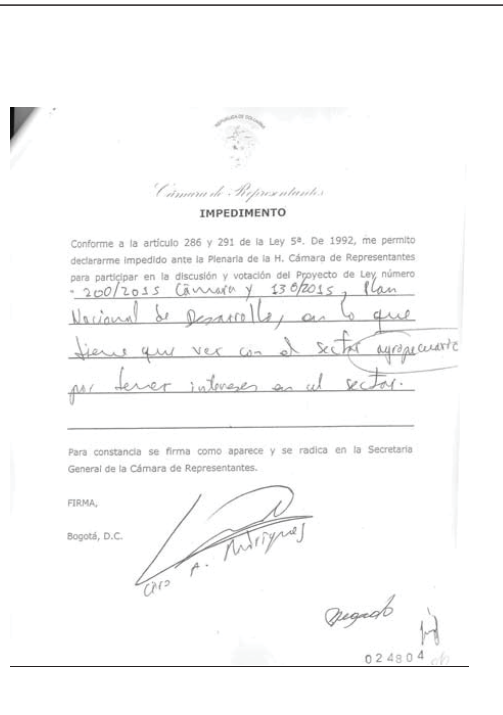 REPUBLICA DE COLOMBIA
Cámara de Representantes
IMPEDIMENTO
Conforme a la artículo 286 y 291 de la Ley 5ª. De 1992, me permito
declararme impedido ante la Plenaria de la H. Cámara de Representantes
para participar en la discusión y votación del Proyecto de Ley número
200/2015 Cámara y 138/2015, Plan
Nacional de Desarrollo, en lo que
tiene que ver con el sector agropecuario
por tener intereses en el sector.
Para constancia se firma como aparece y se radica en la Secretaria
General de la Cámara de Representantes.
FIRMA,
Bogotá, D.C.
A.
Negado
024804